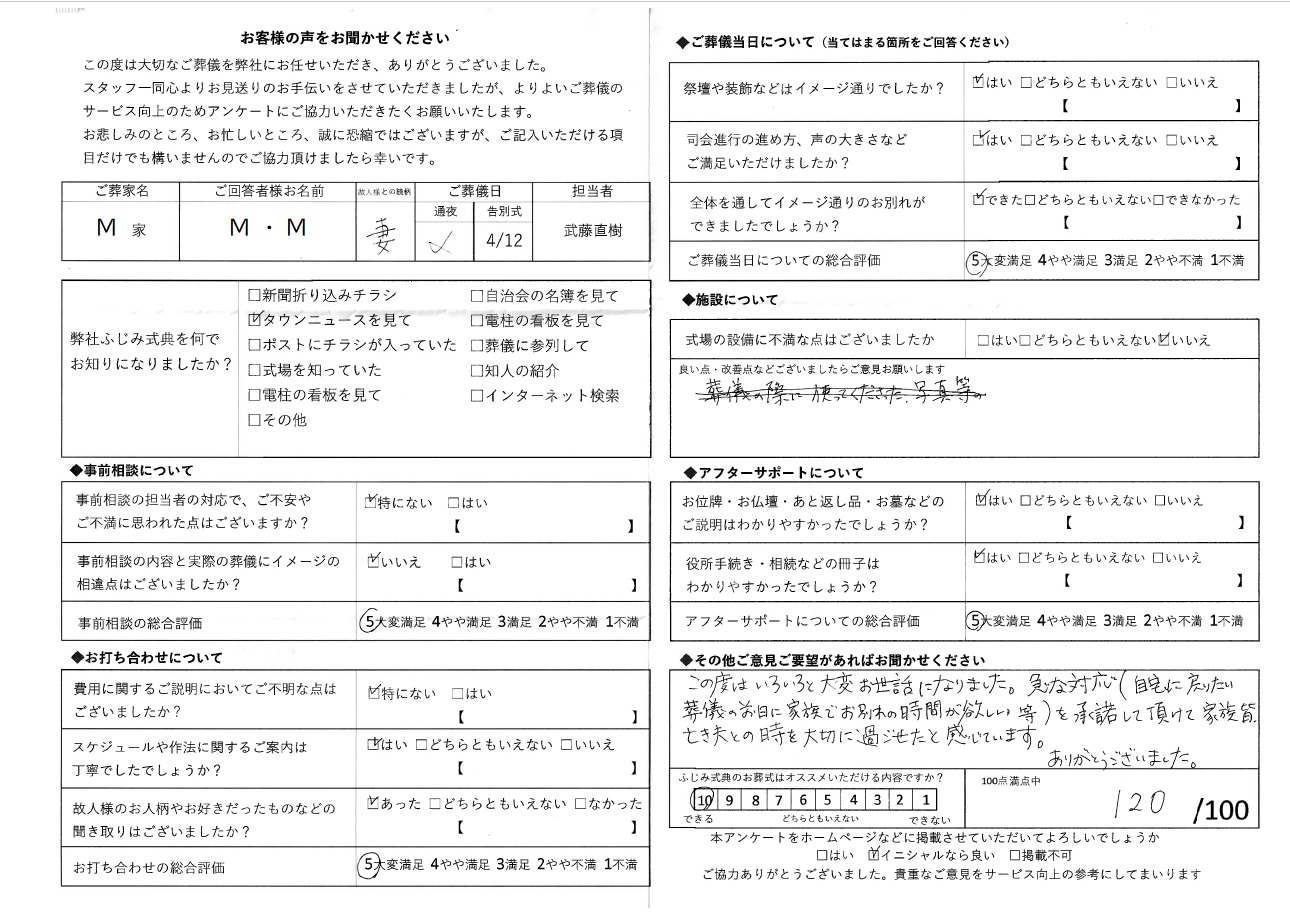 お客様の声をお聞かせください
この度は大切なご葬儀を弊社にお任せいただき、ありがとうございました。
スタッフ一同心よりお見送りのお手伝いをさせていただきましたが、よりよいご葬儀の
サービス向上のためアンケートにご協力いただきたくお願いいたします。
お悲しみのところ、お忙しいところ、誠に恐縮ではございますが、ご記入いただける項
目だけでも構いませんのでご協力頂けましたら幸いです。
ご葬家名 ご回答者様お名前 故人様との続柄 ご葬儀日 担当者
通夜 告別式
M 家 M・M 妻 4/12 武藤直樹
弊社ふじみ式典を何で
お知りになりましたか？
□新聞折り込みチラシ □自治会の名簿を見て
☑タウンニュースを見て □電柱の看板を見て
□ポストにチラシが入っていた □葬儀に参列して
□式場を知っていた □知人の紹介
□電柱の看板を見て □インターネット検索
□その他
◆事前相談について
事前相談の担当者の対応で、ご不安や
ご不満に思われた点はございますか？
☑特にない □はい
【 】
事前相談の内容と実際の葬儀にイメージの
相違点はございましたか？
☑いいえ □はい
【 】
事前相談の総合評価 5大変満足 4やや満足 3満足 2やや不満 1不満
◆お打ち合わせについて
費用に関するご説明においてご不明な点は
ございましたか？
☑特にない □はい
【 】
スケジュールや作法に関するご案内は
丁寧でしたでしょうか？
☑はい □どちらともいえない □いいえ
【 】
故人様のお人柄やお好きだったものなどの
聞き取りはございましたか？
☑あった □どちらともいえない □なかった
【 】
お打ち合わせの総合評価 5大変満足 4やや満足 3満足 2やや不満 1不満
◆ご葬儀当日について（当てはまる箇所をご回答ください）
祭壇や装飾などはイメージ通りでしたか？
☑はい □どちらともいえない □いいえ
【 】
司会進行の進め方、声の大きさなど
ご満足いただけましたか？
☑はい □どちらともいえない □いいえ
【 】
全体を通してイメージ通りのお別れが
できましたでしょうか？
☑できた□どちらともいえない□できなかった
【 】
ご葬儀当日についての総合評価 5大変満足 4やや満足 3満足 2やや不満 1不満
◆施設について
式場の設備に不満な点はございましたか □はい□どちらともいえない☑いいえ
良い点・改善点などございましたらご意見お願いします
葬儀の際に使ってくださった、写真等の
◆アフターサポートについて
お位牌・お仏壇・あと返し品・お墓などの
ご説明はわかりやすかったでしょうか？
☑はい □どちらともいえない □いいえ
【 】
役所手続き・相続などの冊子は
わかりやすかったでしょうか？
☑はい □どちらともいえない □いいえ
【 】
アフターサポートについての総合評価 5大変満足 4やや満足 3満足 2やや不満 1不満
◆その他ご意見ご要望があればお聞かせください
この度はいろいろと大変お世話になりました。急な対応（自宅に戻りたい
葬儀の前日に家族でお別れの時間が欲しい 等）を承諾して頂けて家族皆、
亡き夫との時を大切に過ごせたと感じています。
ありがとうございました。
ふじみ式典のお葬式はオススメいただける内容ですか？
10 9 8 7 6 5 4 3 2 1
できる どちらともいえない できない
100点満点中
120 /100
本アンケートをホームページなどに掲載させていただいてよろしいでしょうか
□はい ☑イニシャルなら良い □掲載不可
ご協力ありがとうございました。貴重なご意見をサービス向上の参考にしてまいります